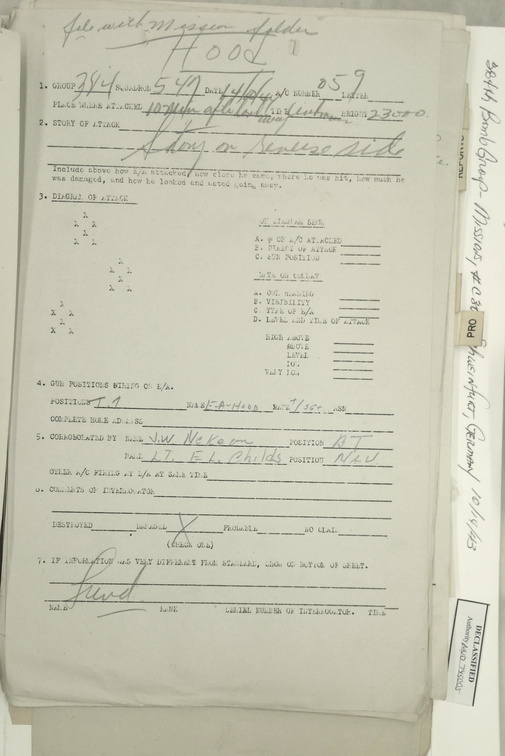 file with Mission folder
HOOD
1. GROUP 384 SQUADRON 547 DATE 14/Oct A/C NUMBER 059 LETTER
PLACE WHERE ATTACKED TIME HEIGHT 23000
2. STORY OF ATTACK
Story on reverse side
Include above how E/A attacked, how close he came, where he was hit, how much he
was damaged, and how he looked and acted going away.
3. DIAGRAM OF ATTACK
X
X X
X
X X
X
X X
X
X X
X
X X
X
X X
ON DIAGRAM SHOW
A. # OF A/C ATTACKED
B. DIRECT OF ATTACK
C. SUN POSITION
A. OUR HEADING
B. VISIBILITY
C. TYPE OF E/A
D. LEVEL AND TIME OF ATTACK
HIGH ABOVE
ABOVE
LEVEL
LOW
VERY LOW
4. GUN POSITIONS FIRING ON E/A.
POSITIONS T.T NAME F.A. HOOD RATE T/Sgt ASN
COMPLETE HOME ADDRESS
5. CORROBORATED BY NAME J.W. McKeon POSITION BT
NAME LT. E L. Childs POSITION NAV
OTHER A/C FIRING AT E/A AT SAME TIME
6. COMMENTS OF INTERROGATOR
DESTROYED DAMAGED X PROBABLE NO CLAIM
(CHECK ONE)
7. IF INFORMATION WAS VERY DIFFERENT FROM STANDARD, SHOW ON BOTTOM OF SHEET.
NAME RANK SERIAL NUMBER OF INTERROGATOR. TIME
384th Bomb Group - Missions, Schweinfurt, Germany 10/14/43
REPORTS
PRO
DECLASSIFIED
Authority